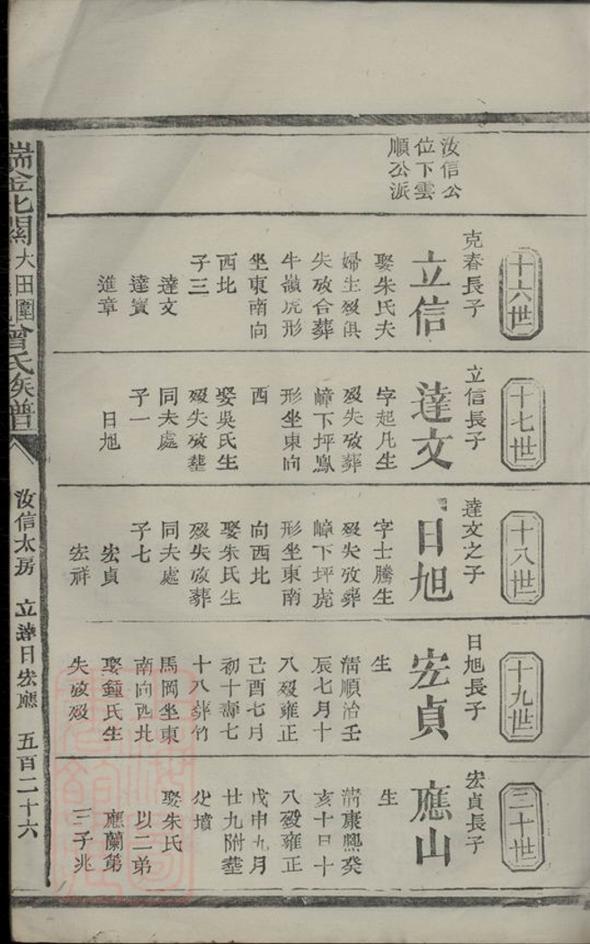 汝信公
位下雲
順公派
十六世
克春長子
立信
娶朱氏夫
婦生歿俱
失攷合葬
牛嶺虎形
坐東南向
西北
子三
達文
達賓
進章
十七世
立信長子
達文
字起凡生
歿失攷葬
嶂下坪鳳
形坐東向
西
娶吳氏生
歿失攷塟
同夫處
子一
日旭
十八世
達文之子
日旭
字士騰生
歿失攷葬
嶂下坪虎
形坐東南
向西北
娶朱氏生
歿失攷葬
同夫處
子七
宏貞
宏祥
十九世
日旭長子
宏貞
生
清順治壬
辰七月十
八歿雍正
己酉七月
初十壽七
十八葬竹
馬岡坐東
南向西北
娶鍾氏生
失攷歿
二十世
宏貞長子
應山
生
清康熙癸
亥十日十
八歿雍正
戊申九月
廿九附塟
父墳
娶朱氏
以二弟
應蘭第
三子兆
瑞金北關大田圍曾氏族譜
汝信太房
立達日宏應
五百二十六